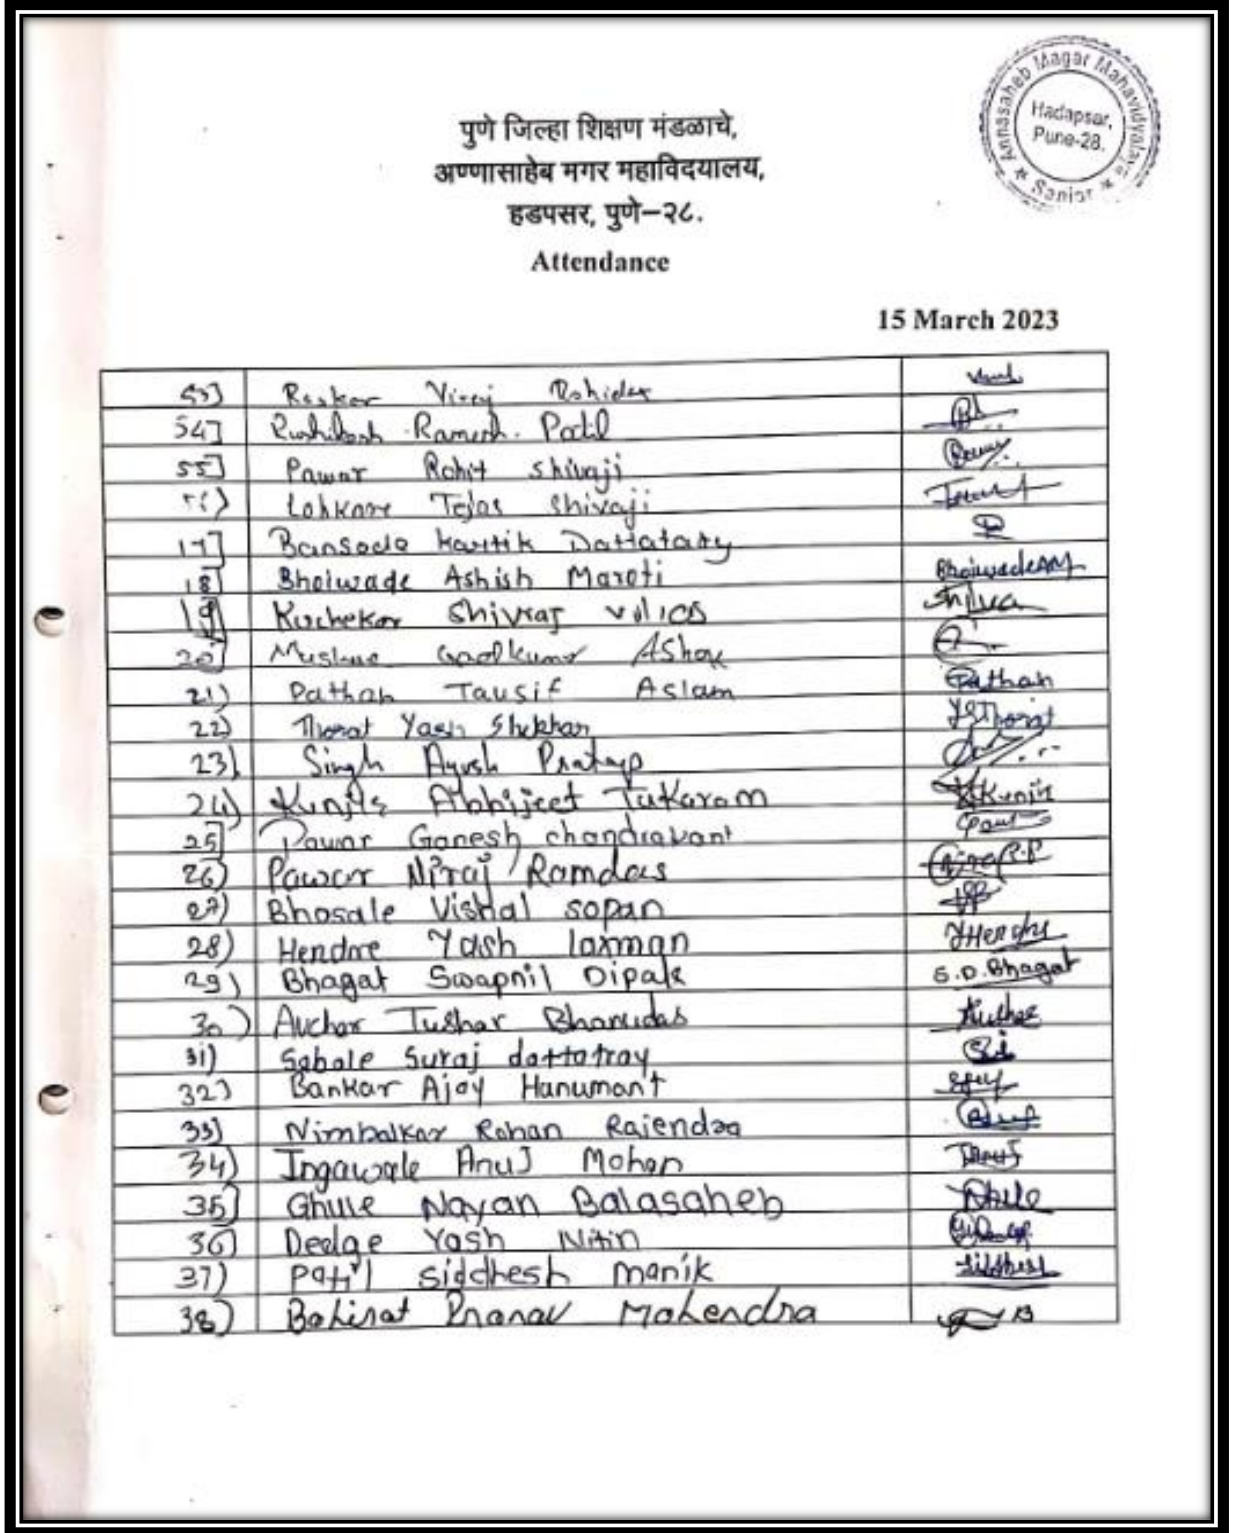 Annasaheb Magar Mahavidyalaya
Hadapsar,
Pune-28.
पुणे जिल्हा शिक्षण मंडळाचे,
अण्णासाहेब मगर महाविदयालय,
हडपसर, पुणे–२८.
Attendance
15 March 2023
53] Raskar Viraj Rohidas
54] Rushikesh Ramesh. Patil
55] Pawar Rohit Shivaji
Lohkare Tejas Shivaji
17] Bansode Kartik Dattatary
18] Bhoiwade Ashish Maroti BhoiwadeAM
19] Kuchekar Shivraj
20] Ashok
21) Pathan Tausif Aslam Pathan
22) Thorat Yash Shekhar YSThorat
23) Singh Ayush Pratap
24) Kunjir Abhijeet Tukaram Kunjir
25] Pawar Ganesh chandrakant
26) Pawar Niraj Ramdas
27) Bhosale Vishal sopan
28) Hendre Yash laxman YHendre
29) Bhagat Swapnil Dipak S.D.Bhagat
30) Auchar Tushar Bhanudas
31) Sabale Suraj dattatray
32) Bankar Ajay Hanumant
33) Nimbalkar Rohan Rajendra
34) Ingawale Anuj Mohan Anuj
35] Ghule Nayan Balasaheb
36) Deelge Yash Nitin
37) Patil siddhesh manik
38) Bahirat Pranav Mahendra